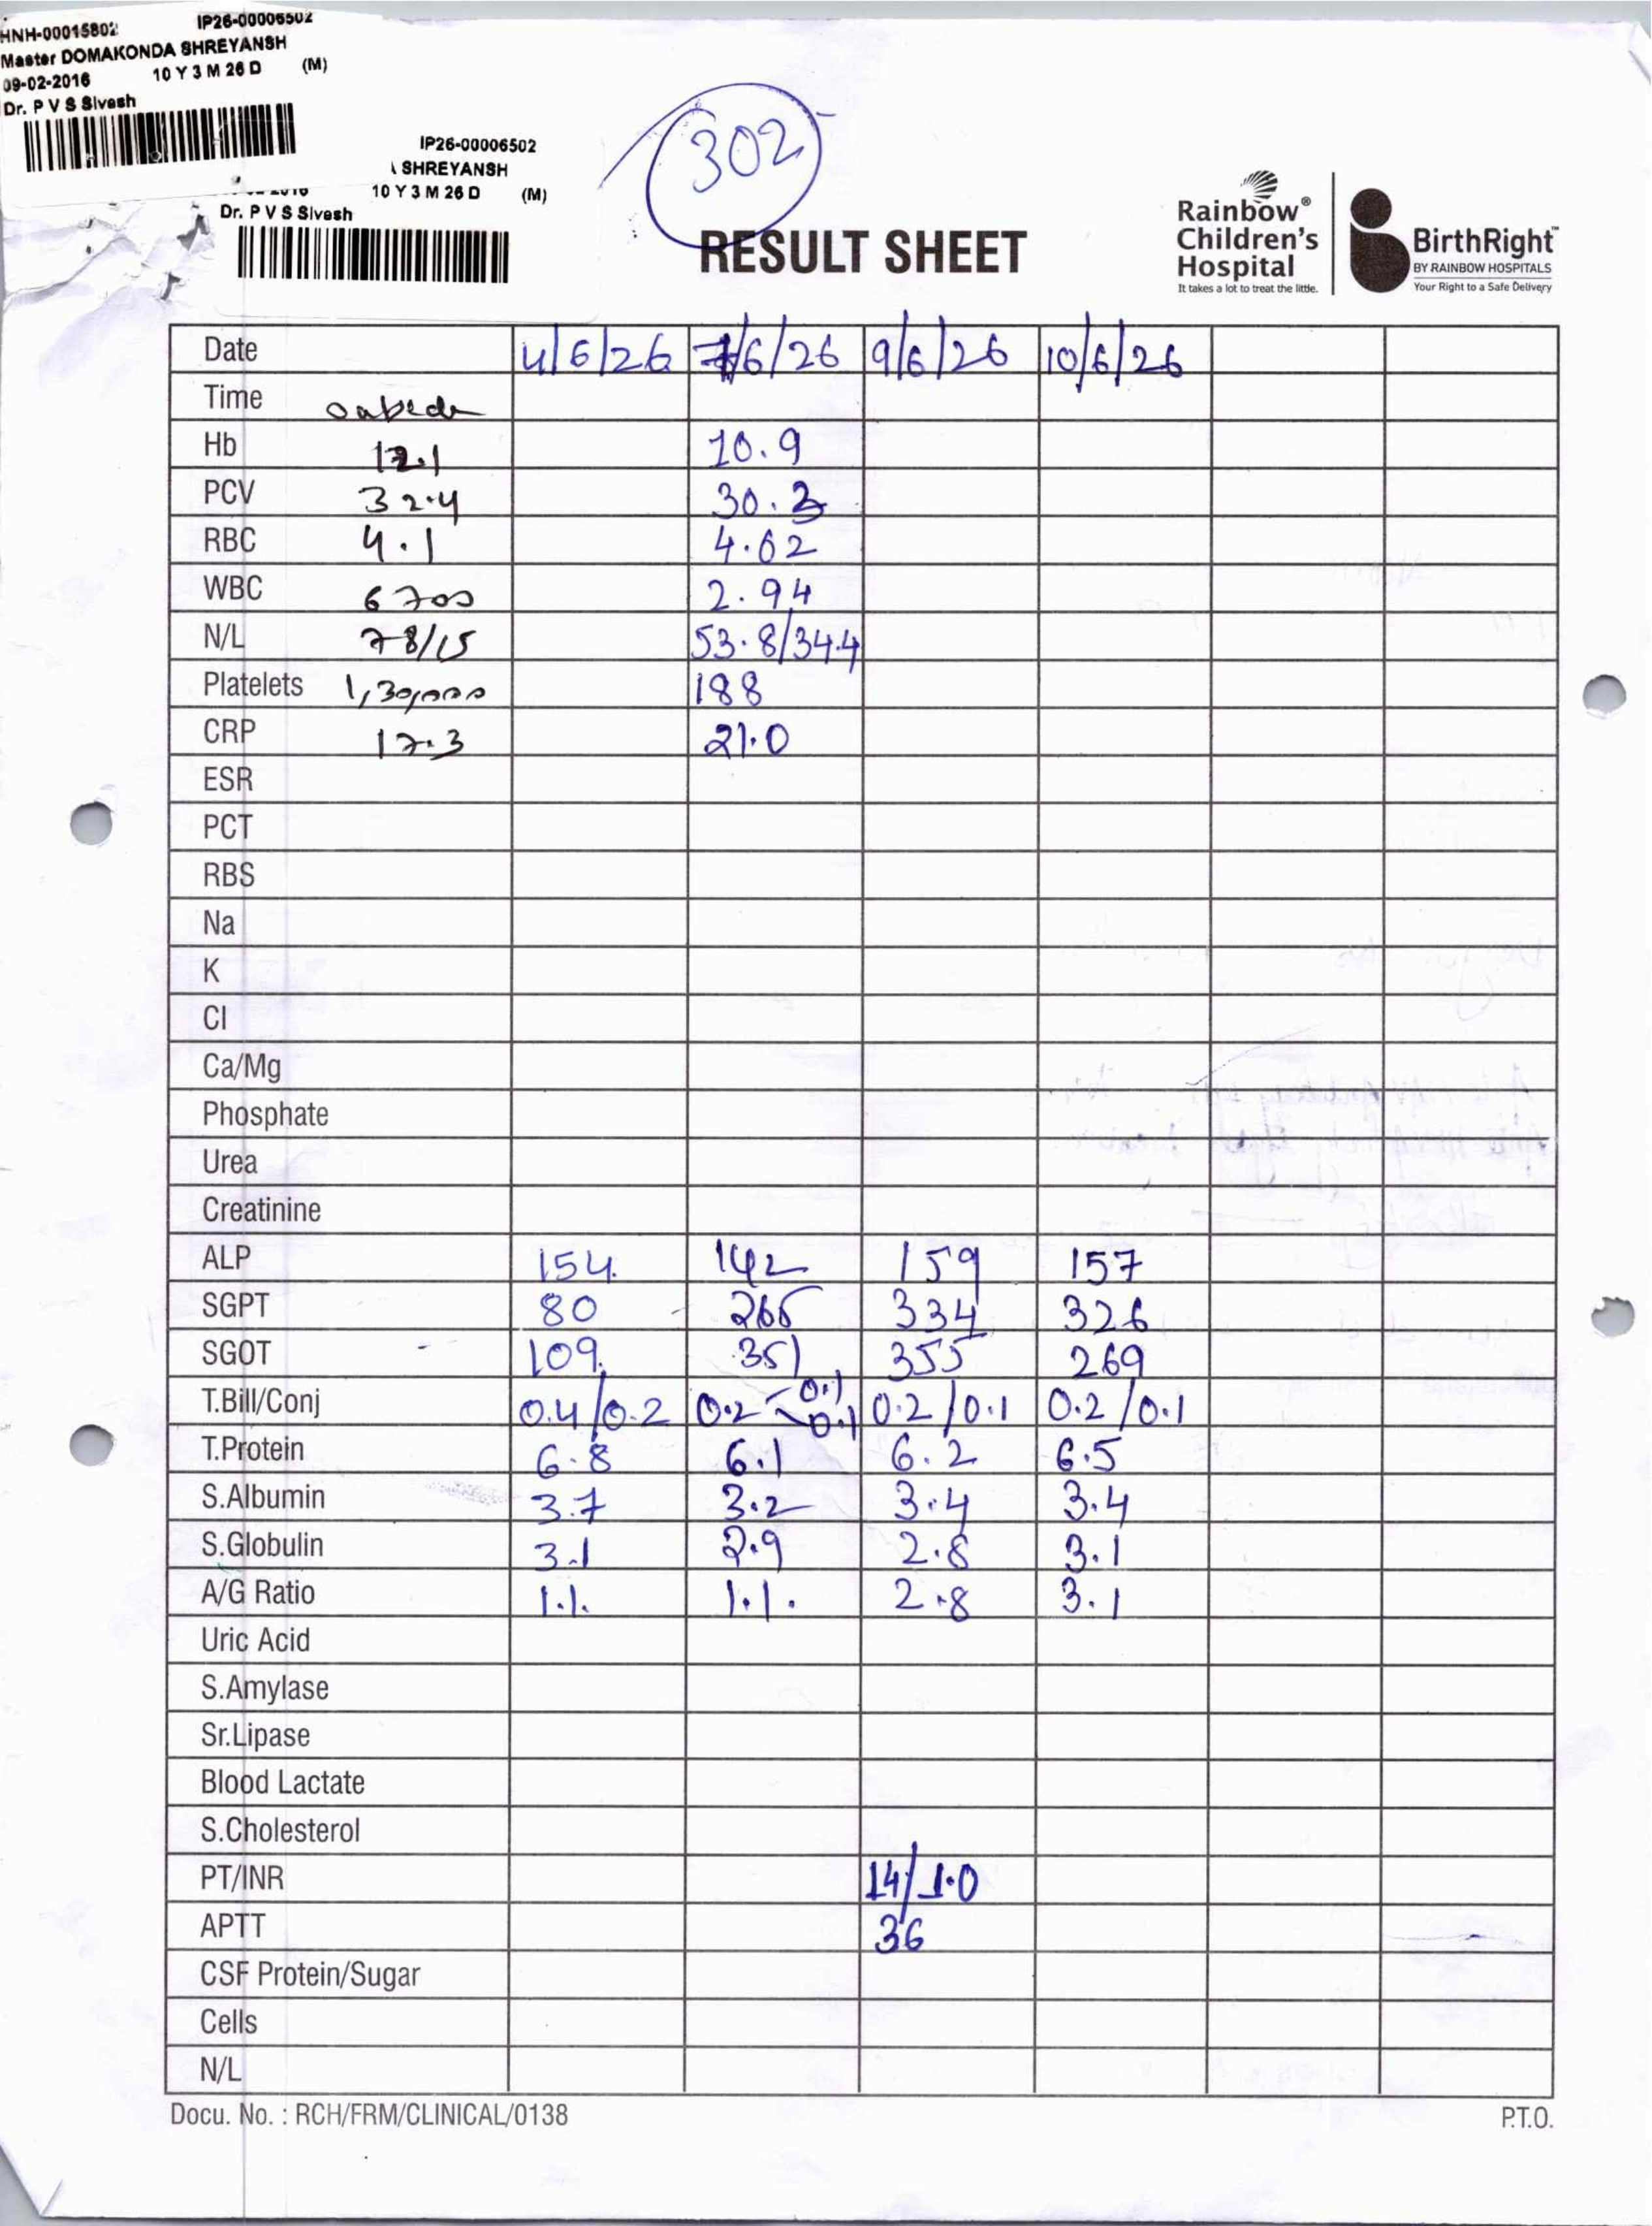 HNH-00015802 IP26-00006502
Master DOMAKONDA SHREYANSH
09-02-2016 10 Y 3 M 26 D (M)
Dr. P V S Sivesh
IP26-00006502
SHREYANSH
10 Y 3 M 26 D (M)
Dr. P V S Sivesh
302
RESULT SHEET
Rainbow®
Children's
Hospital
It takes a lot to treat the little.
BirthRight™
BY RAINBOW HOSPITALS
Your Right to a Safe Delivery
Date 4/6/26 7/6/26 9/6/26 10/6/26
Time
Hb 12.1 10.9
PCV 32.4 30.3
RBC 4.1 4.02
WBC 6700 2.94
N/L 78/15 53.8/34.4
Platelets 1,30,000 188
CRP 17.3 21.0
ESR
PCT
RBS
Na
K
Cl
Ca/Mg
Phosphate
Urea
Creatinine
ALP 154. 142 159 157
SGPT 80 265 334 326
SGOT 109. 351 355 269
T.Bill/Conj 0.4/0.2 0.2 0.1 0.1 0.2/0.1 0.2/0.1
T.Protein 6.8 6.1 6.2 6.5
S.Albumin 3.7 3.2 3.4 3.4
S.Globulin 3.1 2.9 2.8 3.1
A/G Ratio 1.1. 1.1. 2.8 3.1
Uric Acid
S.Amylase
Sr.Lipase
Blood Lactate
S.Cholesterol
PT/INR 14/1.0
APTT 36
CSF Protein/Sugar
Cells
N/L
Docu. No. : RCH/FRM/CLINICAL/0138 P.T.O.